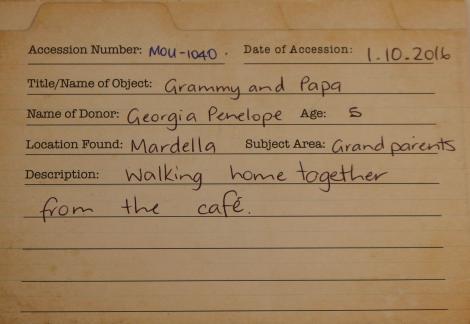 Accession Number: MOU-1040. Date of Accession: 1.10.2016
Title/Name of Object: Grammy and Papa
Name of Donor: Georgia Penelope Age: 5
Location Found: Mardella Subject Area: Grandparents
Description: Walking home together
from the café.